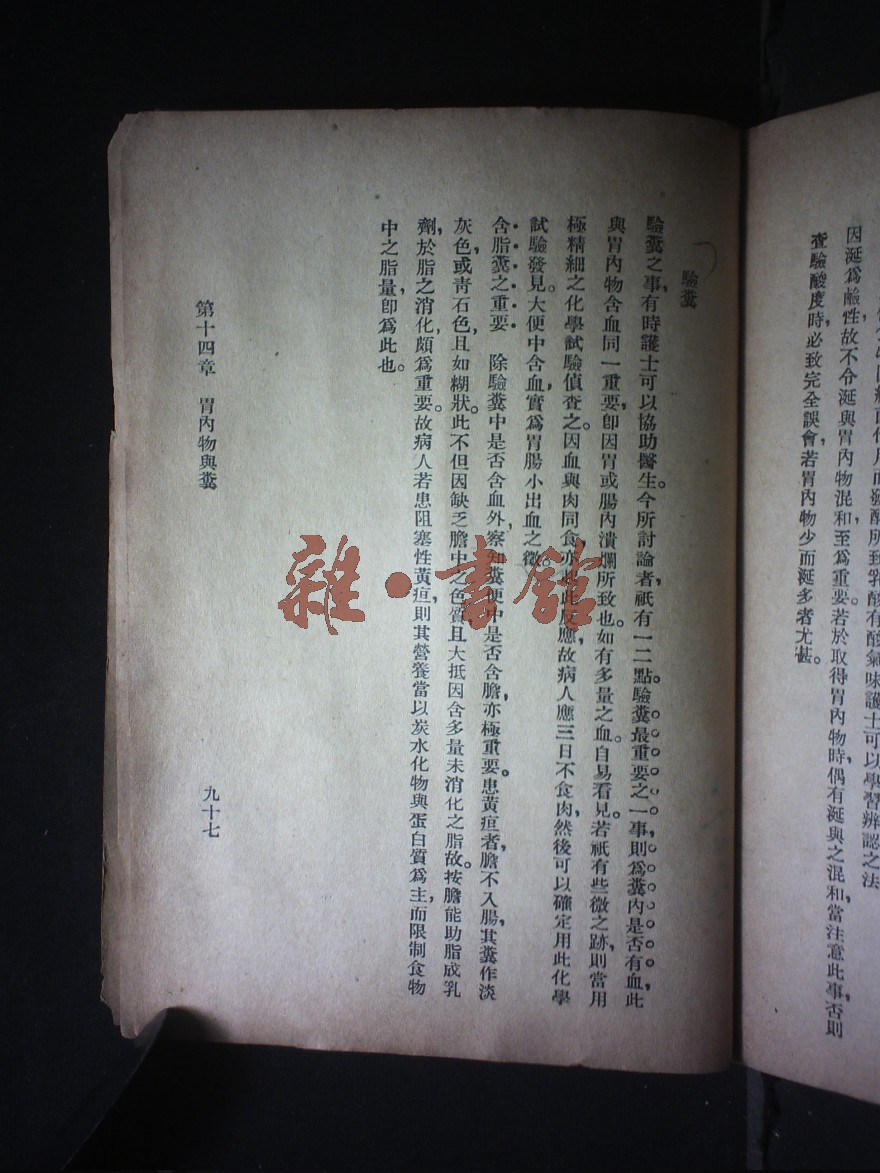 因涎爲鹹性故不令涎與胃內物混和至爲重要若於取得胃內物時偶有涎與之混和當注意此事否則
查驗酸度時必致完全誤會若胃內物少而涎多者尤甚。
驗糞
驗糞之事,有時護士可以協助醫生。今所討論者祇有一二點。驗糞最重要之一事,則爲糞內是否有血,此
與胃內物含血同一重要,卽因胃或腸內潰爛所致也。如有多量之血。自易看見。若祇有些微之跡,則當用
極精細之化學試驗偵查之。因血與肉同食亦此反應,故病人應三日不食肉,然後可以確定用此化學
試驗發見。大便中含血,實爲胃腸小出血之徵。
含脂糞之重要 除驗糞中是否含血外,察知糞便中是否含膽,亦極重要。患黃疸者,膽不入腸,其糞作淡
灰色,或靑石色,且如糊狀。此不但因缺乏膽中之色質,且大抵因含多量未消化之脂故。按膽能助脂成乳
劑,於脂之消化,頗爲重要。故病人若患阻塞性黃疸,則其營養當以炭水化物與蛋白質爲主,而限制食物
中之脂量,卽爲此也。
第十四章 胃內物與糞
九十七
雜·書館